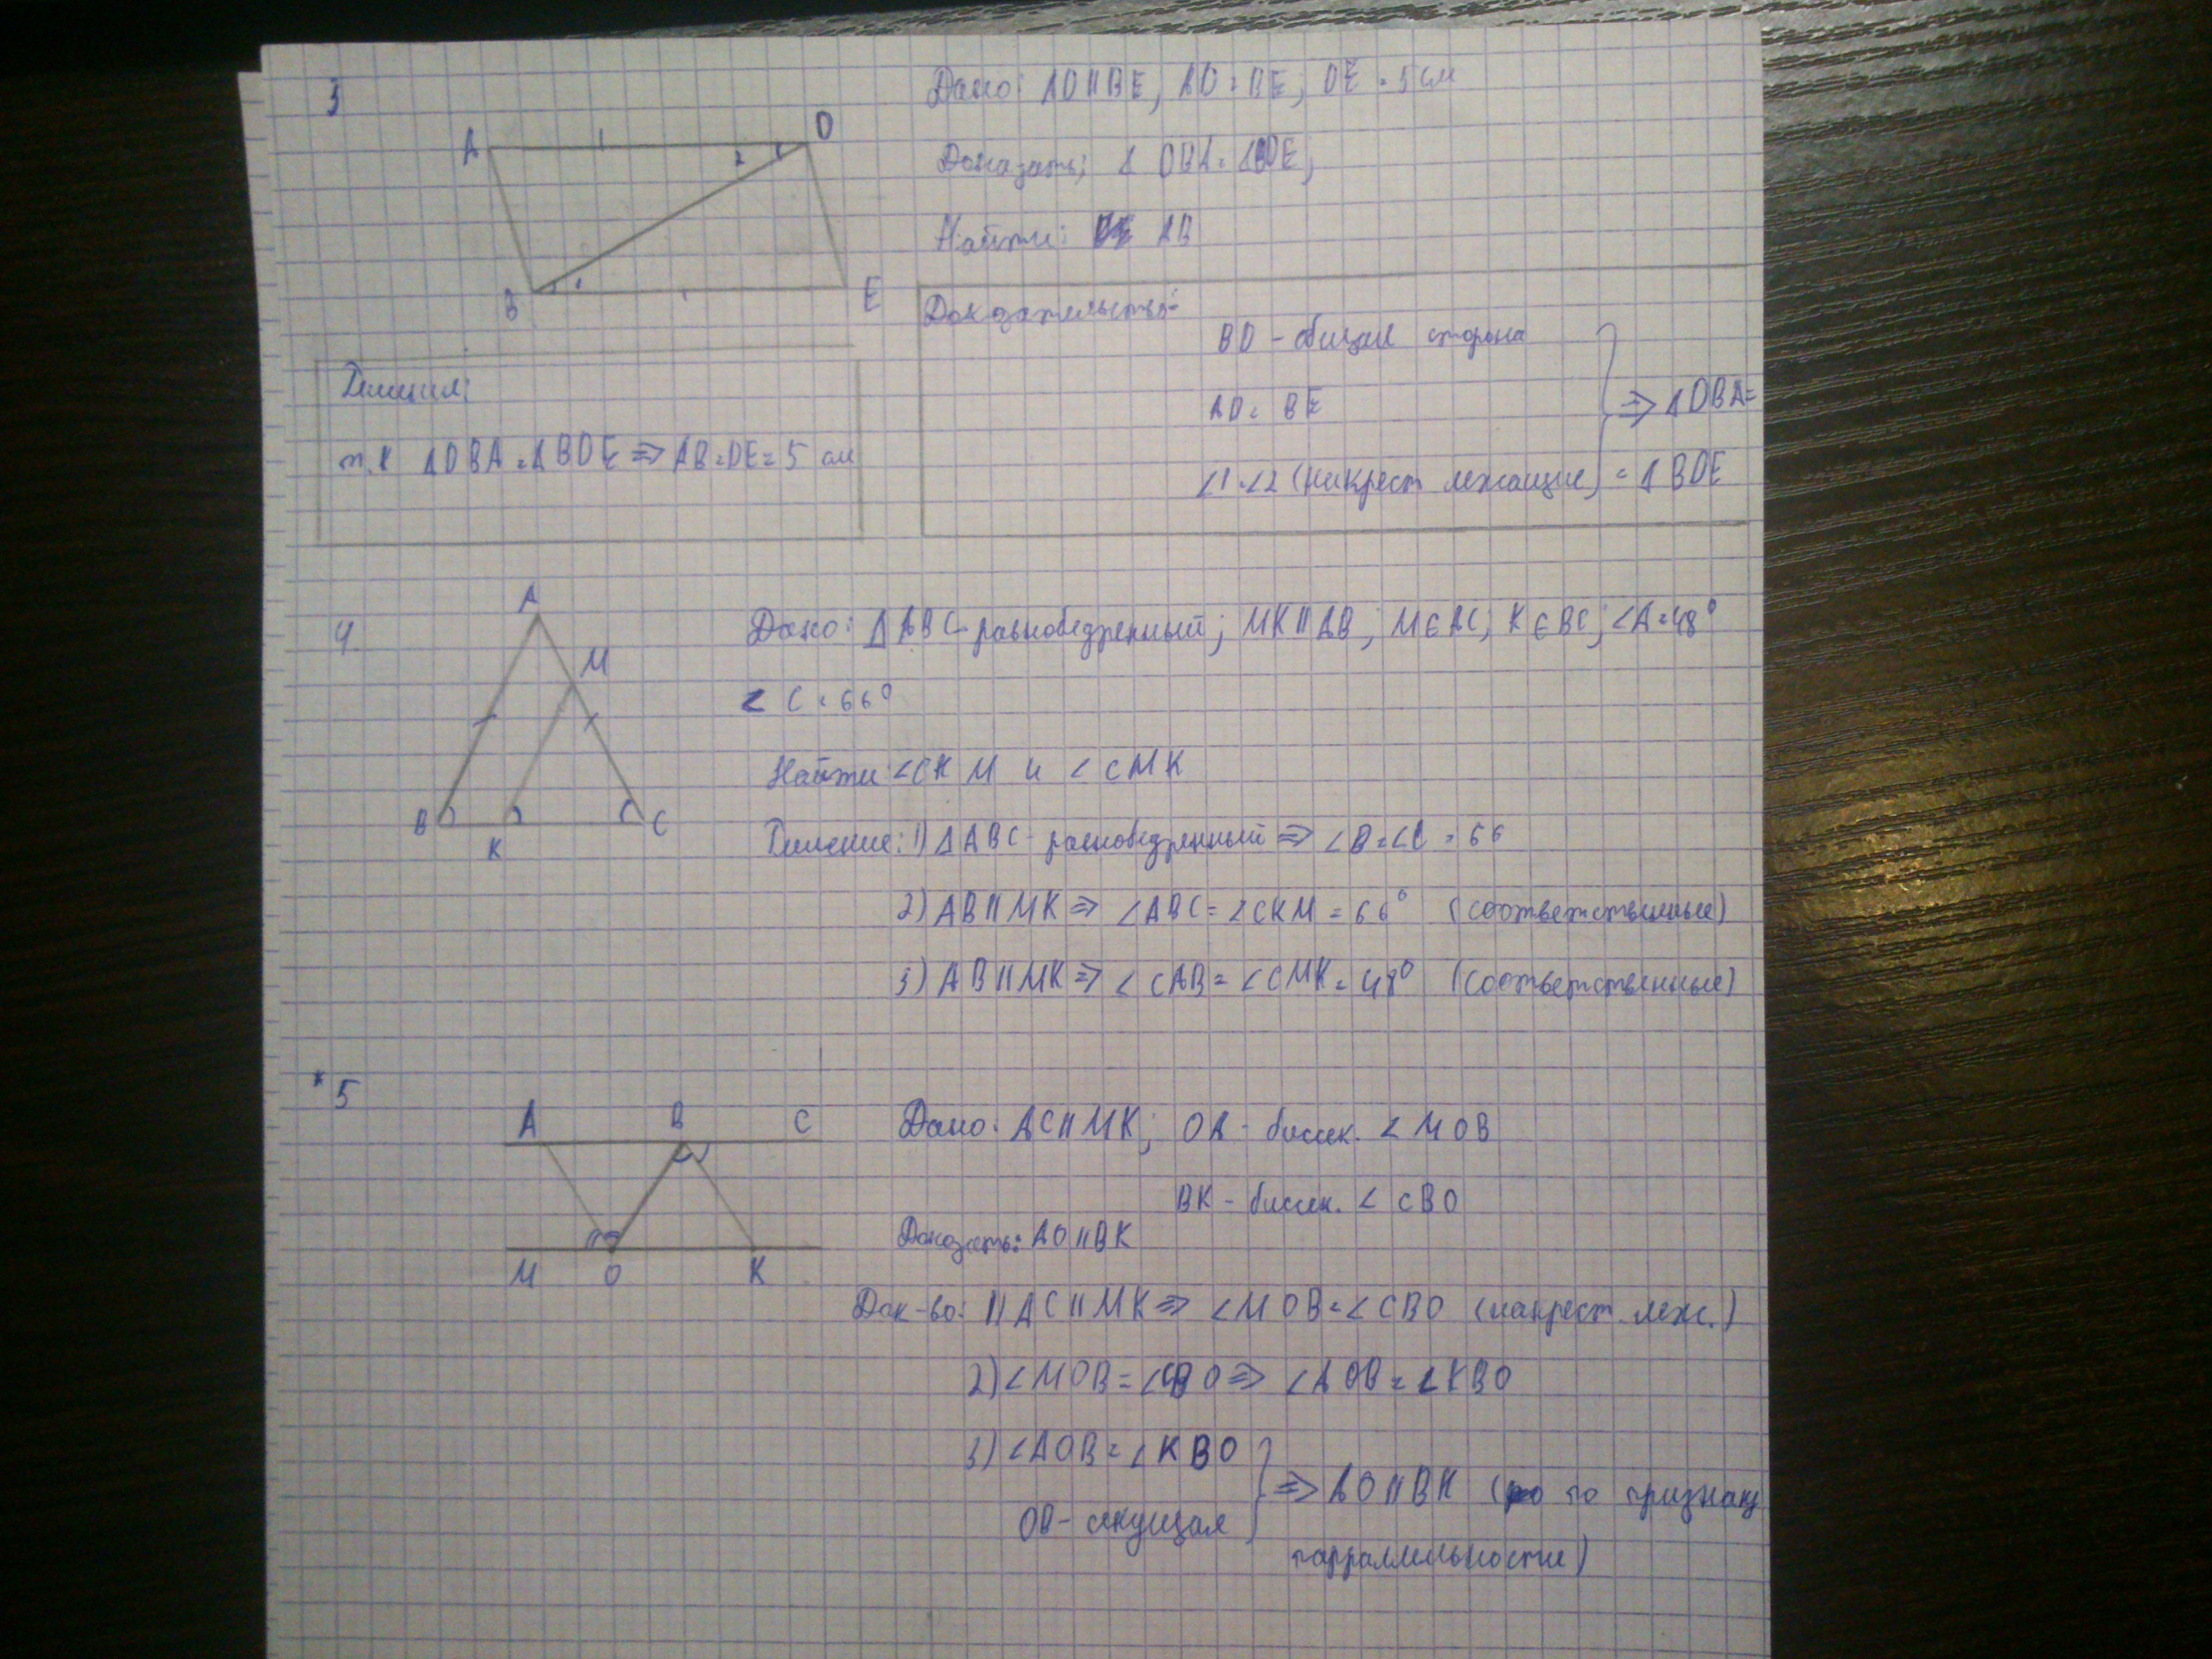 3
A
1
2
D
B
1
E
Дано: AD||BE, AD = BE, DE = 5 см
Доказать: Δ DBA = ΔBDE;
Найти: AB
Доказательство:
BD - общая сторона
AD = BE
∠1=∠2 (накрест лежащие)
=> ΔDBA=
= Δ BDE
Решения:
т.к ΔDBA = ΔBDE => AB=DE=5 см
4.
A
M
B
K
C
Дано: Δ ABC - равнобедренный; MK||AB; M∈AC; K∈BC; ∠A=48°
∠ C = 66°
Найти: ∠CKM и ∠CMK
Решение: 1) Δ ABC - равнобедренный => ∠B=∠C = 66
2) AB||MK => ∠ABC = ∠CKM = 66° (соответственные)
3) AB||MK => ∠CAB = ∠CMK = 48° (соответственные)
* 5
A
B
C
M
O
K
Дано: AC||MK; OA - биссек. ∠MOB
BK - биссек. ∠ CBO
Доказать: AO||BK
Док-во: 1) AC||MK => ∠MOB = ∠CBO (накрест. леж.)
2) ∠MOB = ∠CBO => ∠AOB = ∠KBO
3) ∠AOB = ∠KBO
OB - секущая
=> AO||BK (по признаку
парраллельности)